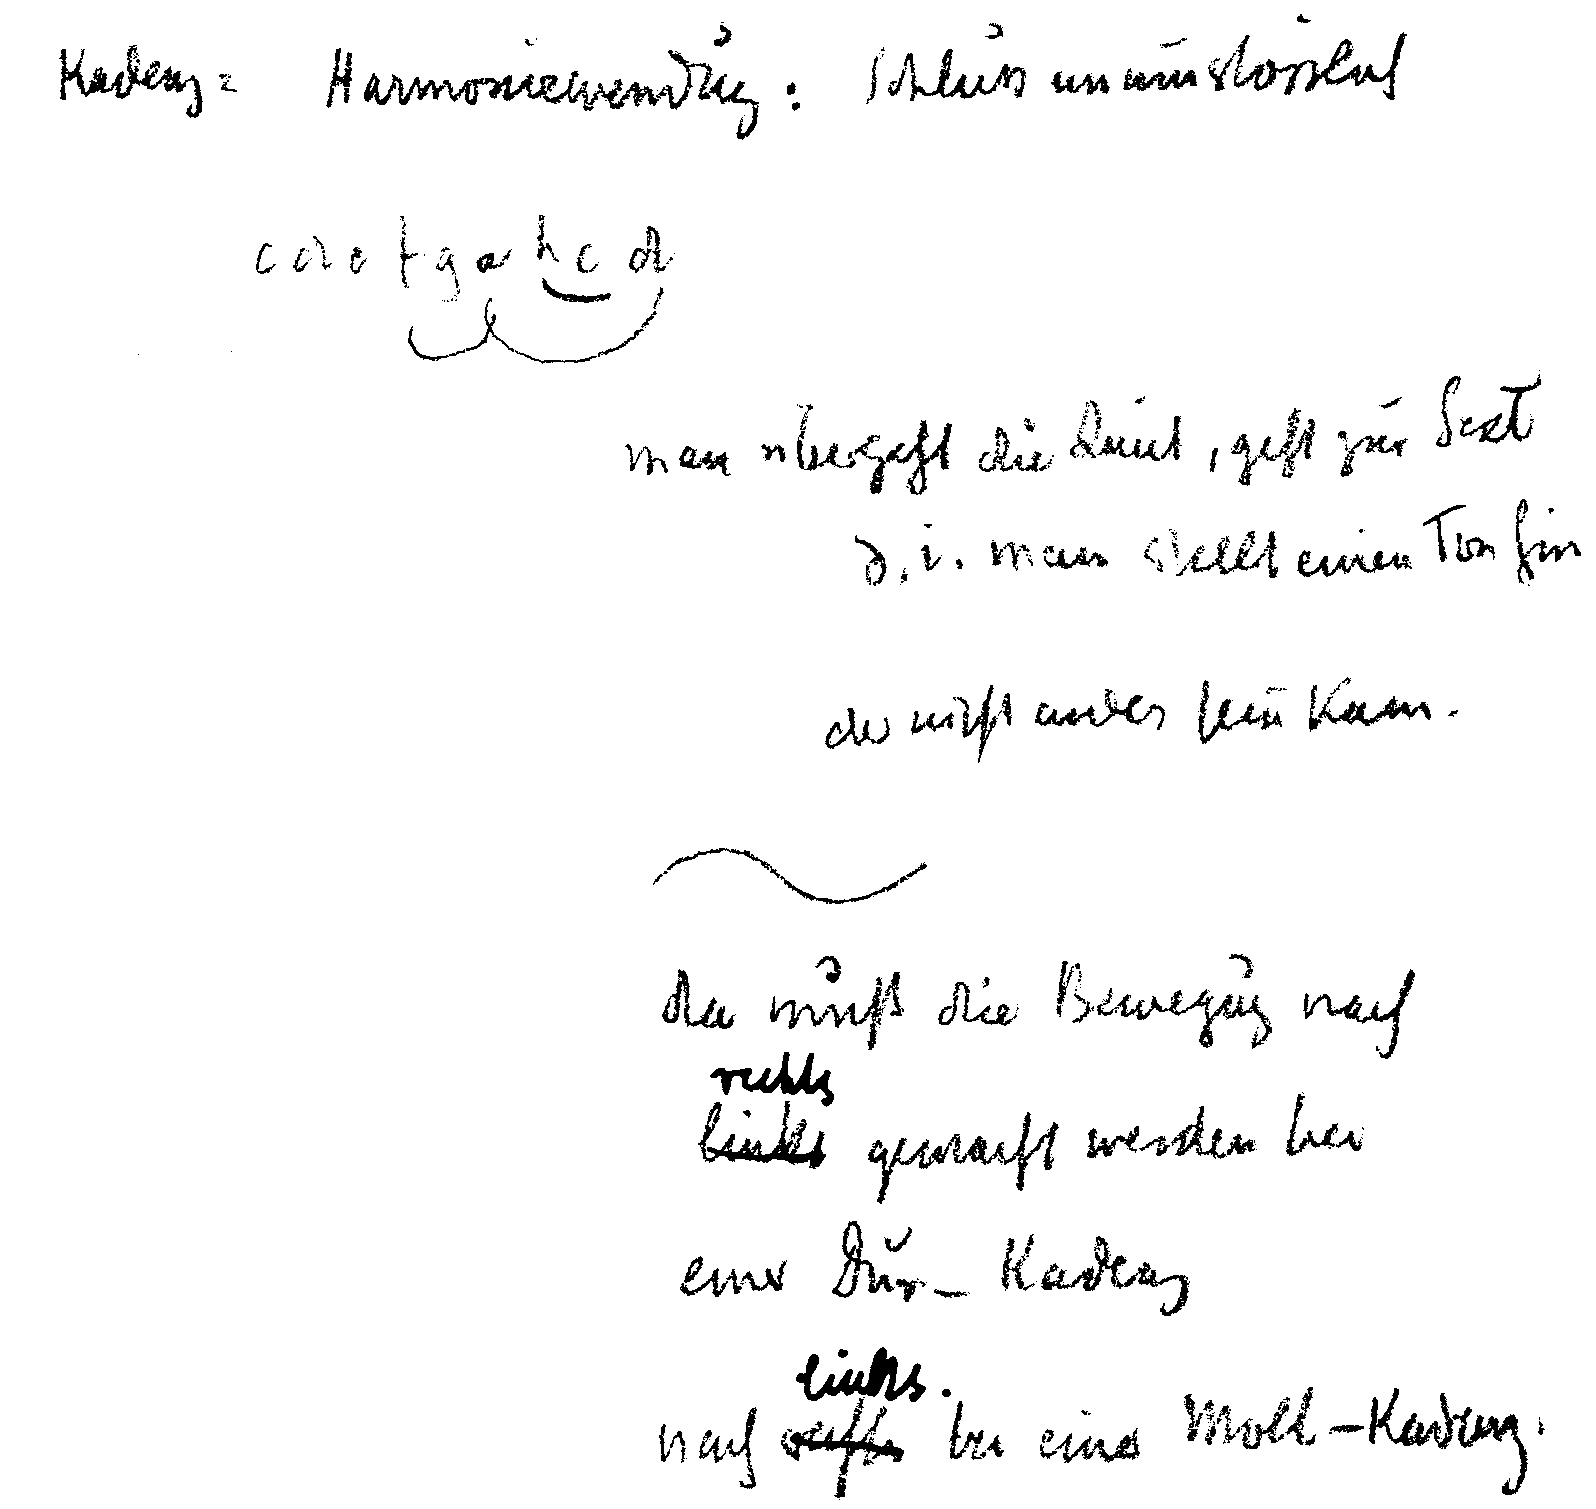 Kadenz = Harmoniewendung: Schluss unumstösslich
c d e f g a h c d
man übergeht die Quint, geht zur Sext
d. i. man stellt einen Ton hin
der nicht anders sein kann.
da muß die Bewegung nach
rechts
links gemacht werden bei
einer Dur-Kadenz
links.
nach rechts bei einer Moll-Kadenz.